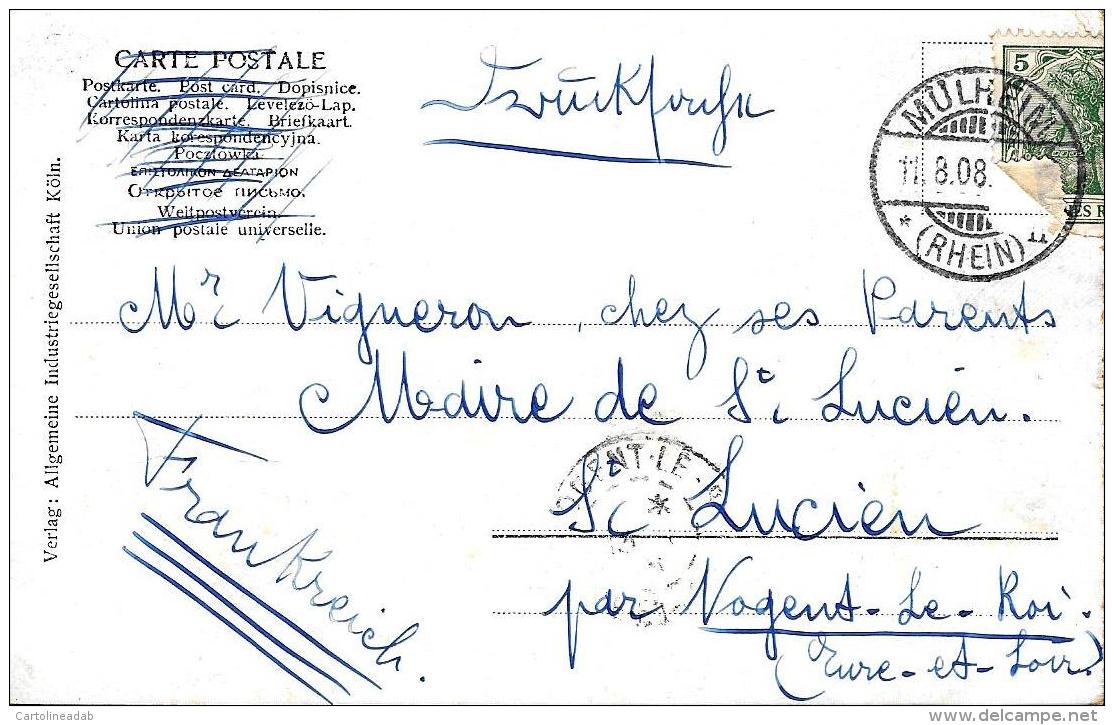 CARTE POSTALE
Postkarte. Post card. Dopisnice.
Cartolina postale. Levelező-Lap.
Korrespondenzkarte. Briefkaart.
Karta korespondencyjna.
Pocztówka.
ΕΠΙΣΤΟΛΙΚΟΝ ΔΕΛΤΑΡΙΟΝ
Открытое письмо.
Weltpostverein.
Union postale universelle.
Drucksache
5
MÜLHEIM
11.8.08.
* (RHEIN)
ES R
Verlag: Allgemeine Industriegesellschaft Köln.
Mr Vigneron, chez ses Parents
Maire de St Lucien.
St Lucien
par Nogent-Le-Roi.
(Eure-et-Loir)
Frankreich.
GENT-LE-R
Cartolineadab
www.delcampe.net